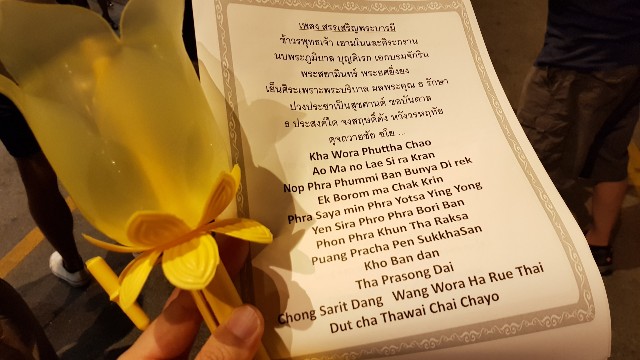 เพลง สรรเสริญพระบารมี
ข้าวรพุทธเจ้า เอามโนและศิระกราน
นบพระภูมิบาล บุญดิเรก เอกบรมจักริน
พระสยามินทร์ พระยศยิ่งยง
เย็นศิระเพราะพระบริบาล ผลพระคุณ ธ รักษา
ปวงประชาเป็นสุขศานต์ ขอบันดาล
ธ ประสงค์ใด จงสฤษดิ์ดัง หวังวรหฤทัย
ดุจถวายชัย ชโย ...
Kha Wora Phuttha Chao
Ao Ma no Lae Si ra Kran
Nop Phra Phummi Ban Bunya Di rek
Ek Borom ma Chak Krin
Phra Saya min Phra Yotsa Ying Yong
Yen Sira Phro Phra Bori Ban
Phon Phra Khun Tha Raksa
Puang Pracha Pen SukkhaSan
Kho Ban dan
Tha Prasong Dai
Chong Sarit Dang Wang Wora Ha Rue Thai
Dut cha Thawai Chai Chayo